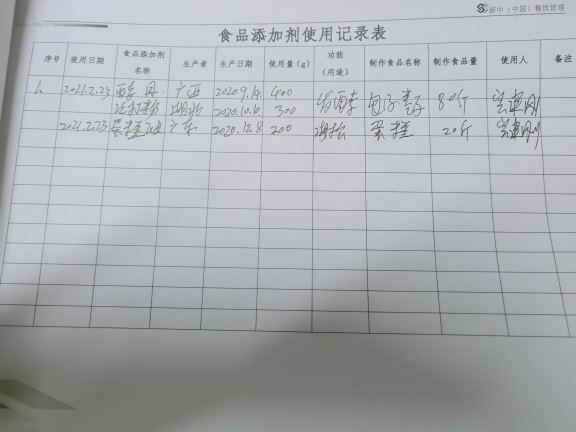 新中（中国）餐饮管理
食品添加剂使用记录表
序号 使用日期 食品添加剂名称 生产者 生产日期 使用量（g） 功能（用途） 制作食品名称 制作食品量 使用人 备注
1. 2021.2.23 酵母 广西 2020.9.14. 400 发酵 包子 80斤
泡打粉 湖北 2020.10.6 300
2021.2.23 蛋糕油 广东 2020.12.8 200 蛋糕 20斤